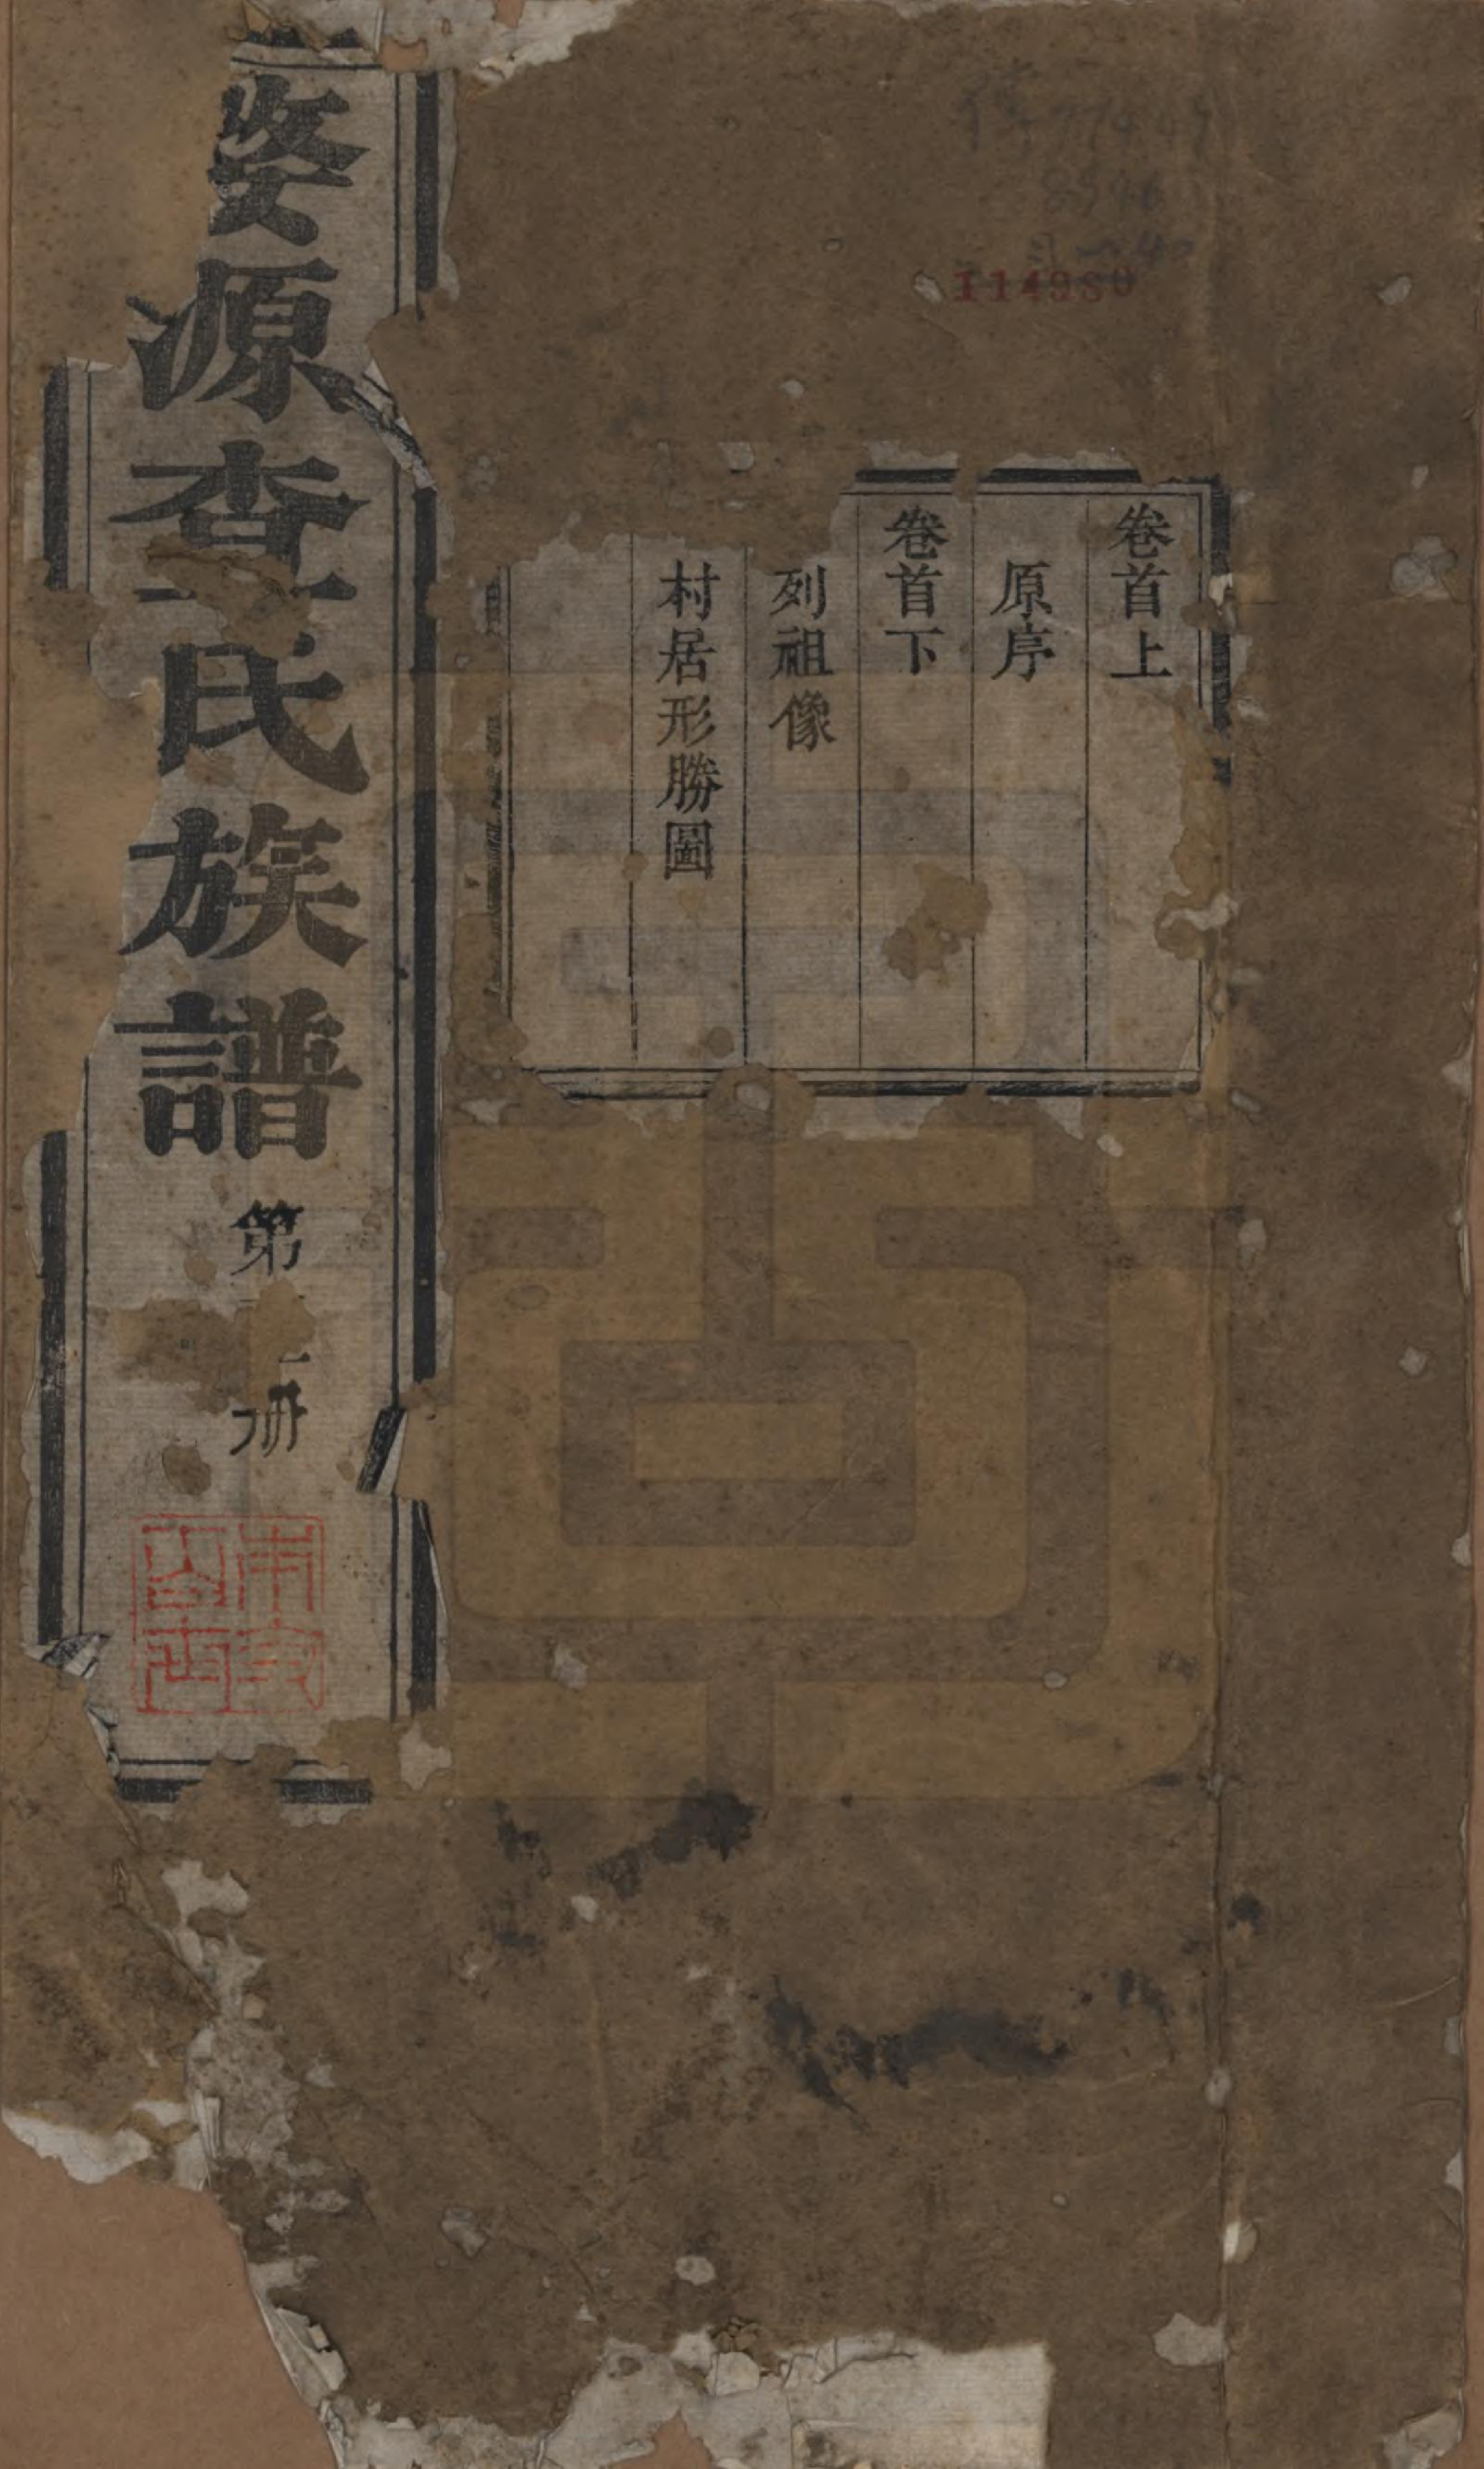 卷首上
原序
卷首下
列祖像
村居形勝圖
婺源查氏族譜
第
册
114980